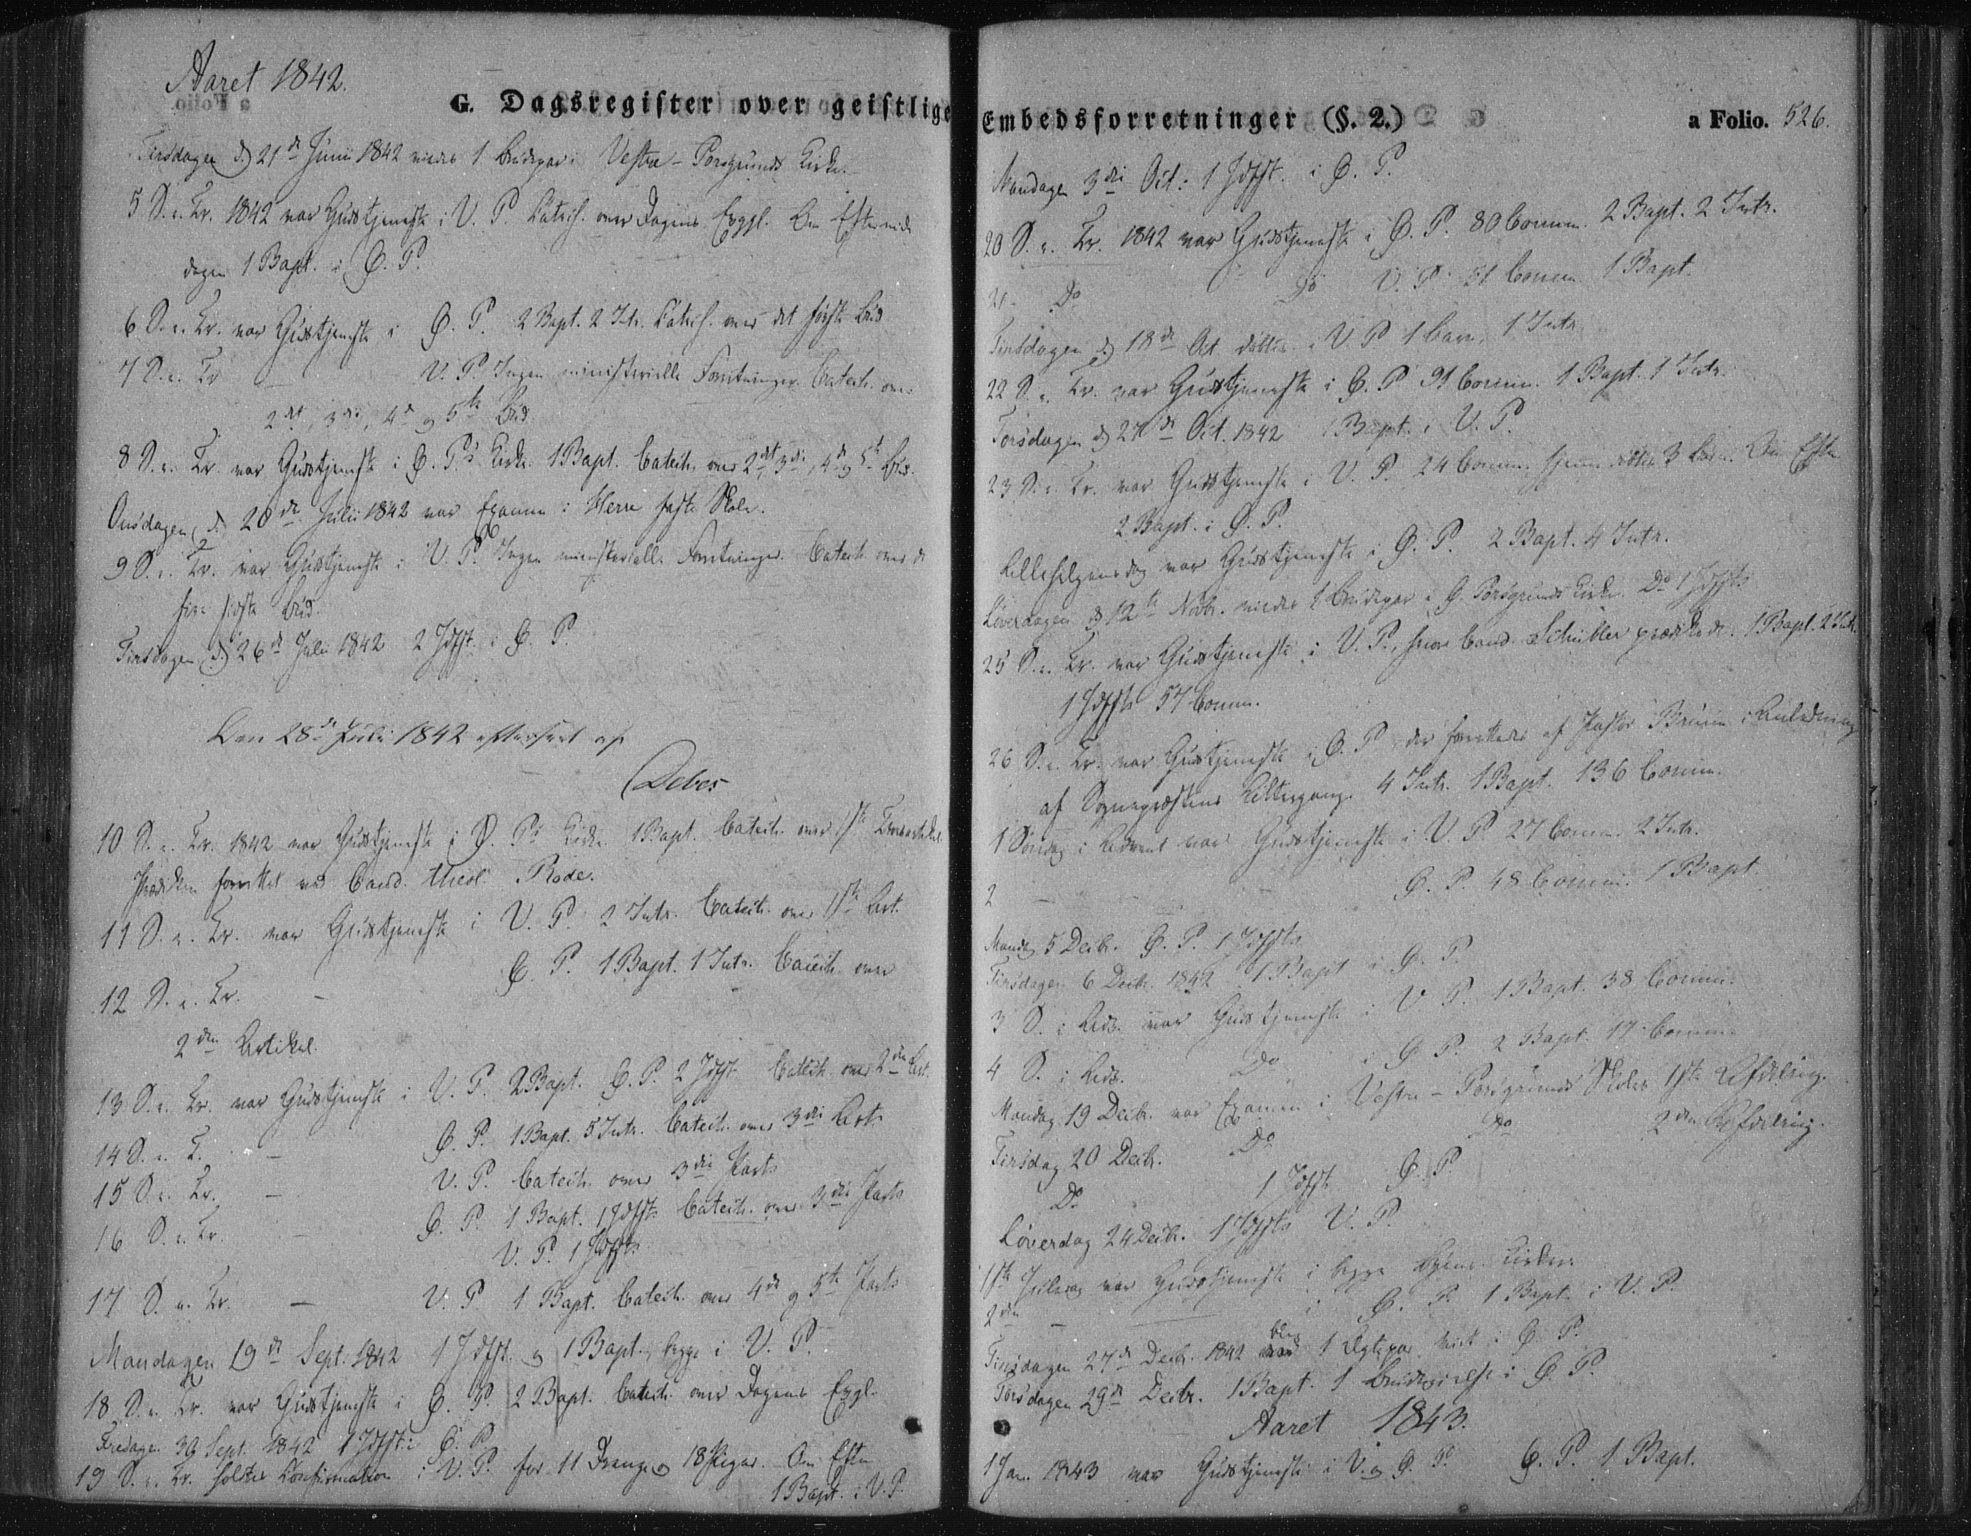 Aaret 1842.
G. Dagsregister over geistlige
Tirsdagen d 21de Junii 1842 viedes 1 Brudepar i Vestre-Porsgrunds Kirke.
5 S. e. Tr. 1842 var Gudstjeneste i V. P. Catech. over Dagens Evgel. Om Eftermid-
dagen 1 Bapt. i Ø. P.
6 S. e. Tr. var Gudstjeneste i Ø. P. 2 Bapt. 2 Intr. Catech. over det første Bud
7 S. e. Tr. — V. P. Ingen ministerielle Forretninger. Catech. over
2det, 3die, 4de og 5te Bud.
8 S. e. Tr. var Gudstjeneste i Ø. P.s Kirke. 1 Bapt. Catech. over 2det, 3die, 4de og 5te Bud.
Onsdagen d. 20de Julii 1842 var Examen i Herre faste Skole.
9 S. e. Tr. var Gudstjeneste i V. P. Ingen ministerielle Forretninger. Catech. over de
fire sidste Bud.
Tirsdagen d. 26de Julii 1842 2 Jdfst. i Ø. P.
Den 28de Julii 1842 efterseet af
Debes
10 S. e. Tr. 1842 var Gudstjeneste i Ø. P.s Kirke 1 Bapt. Catech. over 1ste Troesartikel.
Prædiken forrettet ved Cand. theol. Rode.
11 S. e. Tr. var Gudstjeneste i V. P. 2 Intr. Catech. over 1ste Art.
12 S. e. Tr. — Ø. P. 1 Bapt. 1 Intr. Catech. over
2den Artikel.
13 S. e. Tr. var Gudstjeneste i V. P. 2 Bapt. Ø. P. 2 Jdfst. Catech. over 2den Art.
14 S. e. T. — Ø. P. 1 Bapt. 5 Intr. Catech. over 3die Art.
15 S. e. Tr. — V. P. Catech. over 3die Part
16 S. e. Tr. — Ø. P. 1 Bapt. 1 Jdfst. Catech. over 3die Part
V. P. 1 Jdfst.
17 S. e. Tr. — V. P. 1 Bapt. Catech. over 4de og 5te Part
Mandagen 19de Sept. 1842 1 Jdfst. og 1 Bapt., begge i V. P.
18 S. e. Tr. var Gudstjeneste i Ø. P. 2 Bapt. Catech. over Dagens Evgl.
Fredagen 30 Sept. 1842 1 Jdfst. i Ø. P.
19 S. e. Tr. holdtes Confirmation i V. P. for 11 Drenge og 18 Piger. Om Efterm
1 Bapt. i V. P.
Embedsforretninger (§. 2.)
a Folio. 526.
Mandagen 3die Oct: 1 Jdfst. i Ø. P.
20 S. e. Tr. 1842 var Gudstjeneste i Ø. P. 80 Comm. 2 Bapt. 2 Intr.
21 - Do Do V. P. 51 Comm. 1 Bapt.
Tirsdagen d 18de Oct. døbtes i V. P. 1 Barn, 1 Intr.
22 S. e. Tr. var Gudstjeneste i Ø. P. 91 Comm. 1 Bapt. 1 Intr.
Torsdagen d 27de Oct. 1842 1 Bapt. i V. P.
23 S. e. Tr. var Gudstjeneste i V. P. 24 Comm. hjemmedøbte 3 Børn. Om Efterm
2 Bapt. i Ø. P.
Allehelgensdag var Gudstjeneste i Ø. P. 2 Bapt. 4 Intr.
Løverdagen d 12te Novbr. viedes 1 Brudepar i Ø. Porsgrunds Kirke. Do 1 Jdfst
25 S. e. Tr. var Gudstjeneste i V. P., hvor Cand. Schübler prædikede. 1 Bapt. 2 Intr.
1 Jdfst 57 Comm.
26 S. e. Tr. var Gudstjeneste i Ø. P. der forrettedes af Pastor Bruun i Anledning
af Sognepræstens Altergang. 4 Intr. 1 Bapt. 136 Comm.
1 Søndag i Advent var Gudstjeneste i V. P. 27 Comm. 2 Intr.
2 — Ø. P. 48 Comm. 1 Bapt.
Mandag 5 Decbr. Ø. P. 1 Jdfst
Tirsdagen 6 Decbr. 1842 1 Bapt i Ø. P.
3 S. i Adv. var Gudstjeneste i V. P. 1 Bapt. 38 Comm.
4 S. i Adv. Do i Ø. P. 2 Bapt. 17 Comm.
Mandag 19 Decbr. var Examen i Vestre-Porsgrunds Skoles 1ste Afdeling.
Tirsdag 20 Decbr. Do Do 2den Afdeling.
Do 1 Jdfst Ø. P.
Løverdag 24 Decbr. 1 Jdfst V. P.
1ste Juledag var Gudstjeneste i begge Byens Kirker
2den — i Ø. P. 1 Bapt. i V. P.
Tirsdagen 27de Decbr. 1842 blev 1 Ægtepar viet i Ø. P.
Torsdagen 29de Decbr. 1 Bapt. 1 Brudevielse i Ø. P.
Aaret 1843.
1 Jan. 1843 var Gudstjeneste i V. og Ø. P. Ø. P. 1 Bapt.